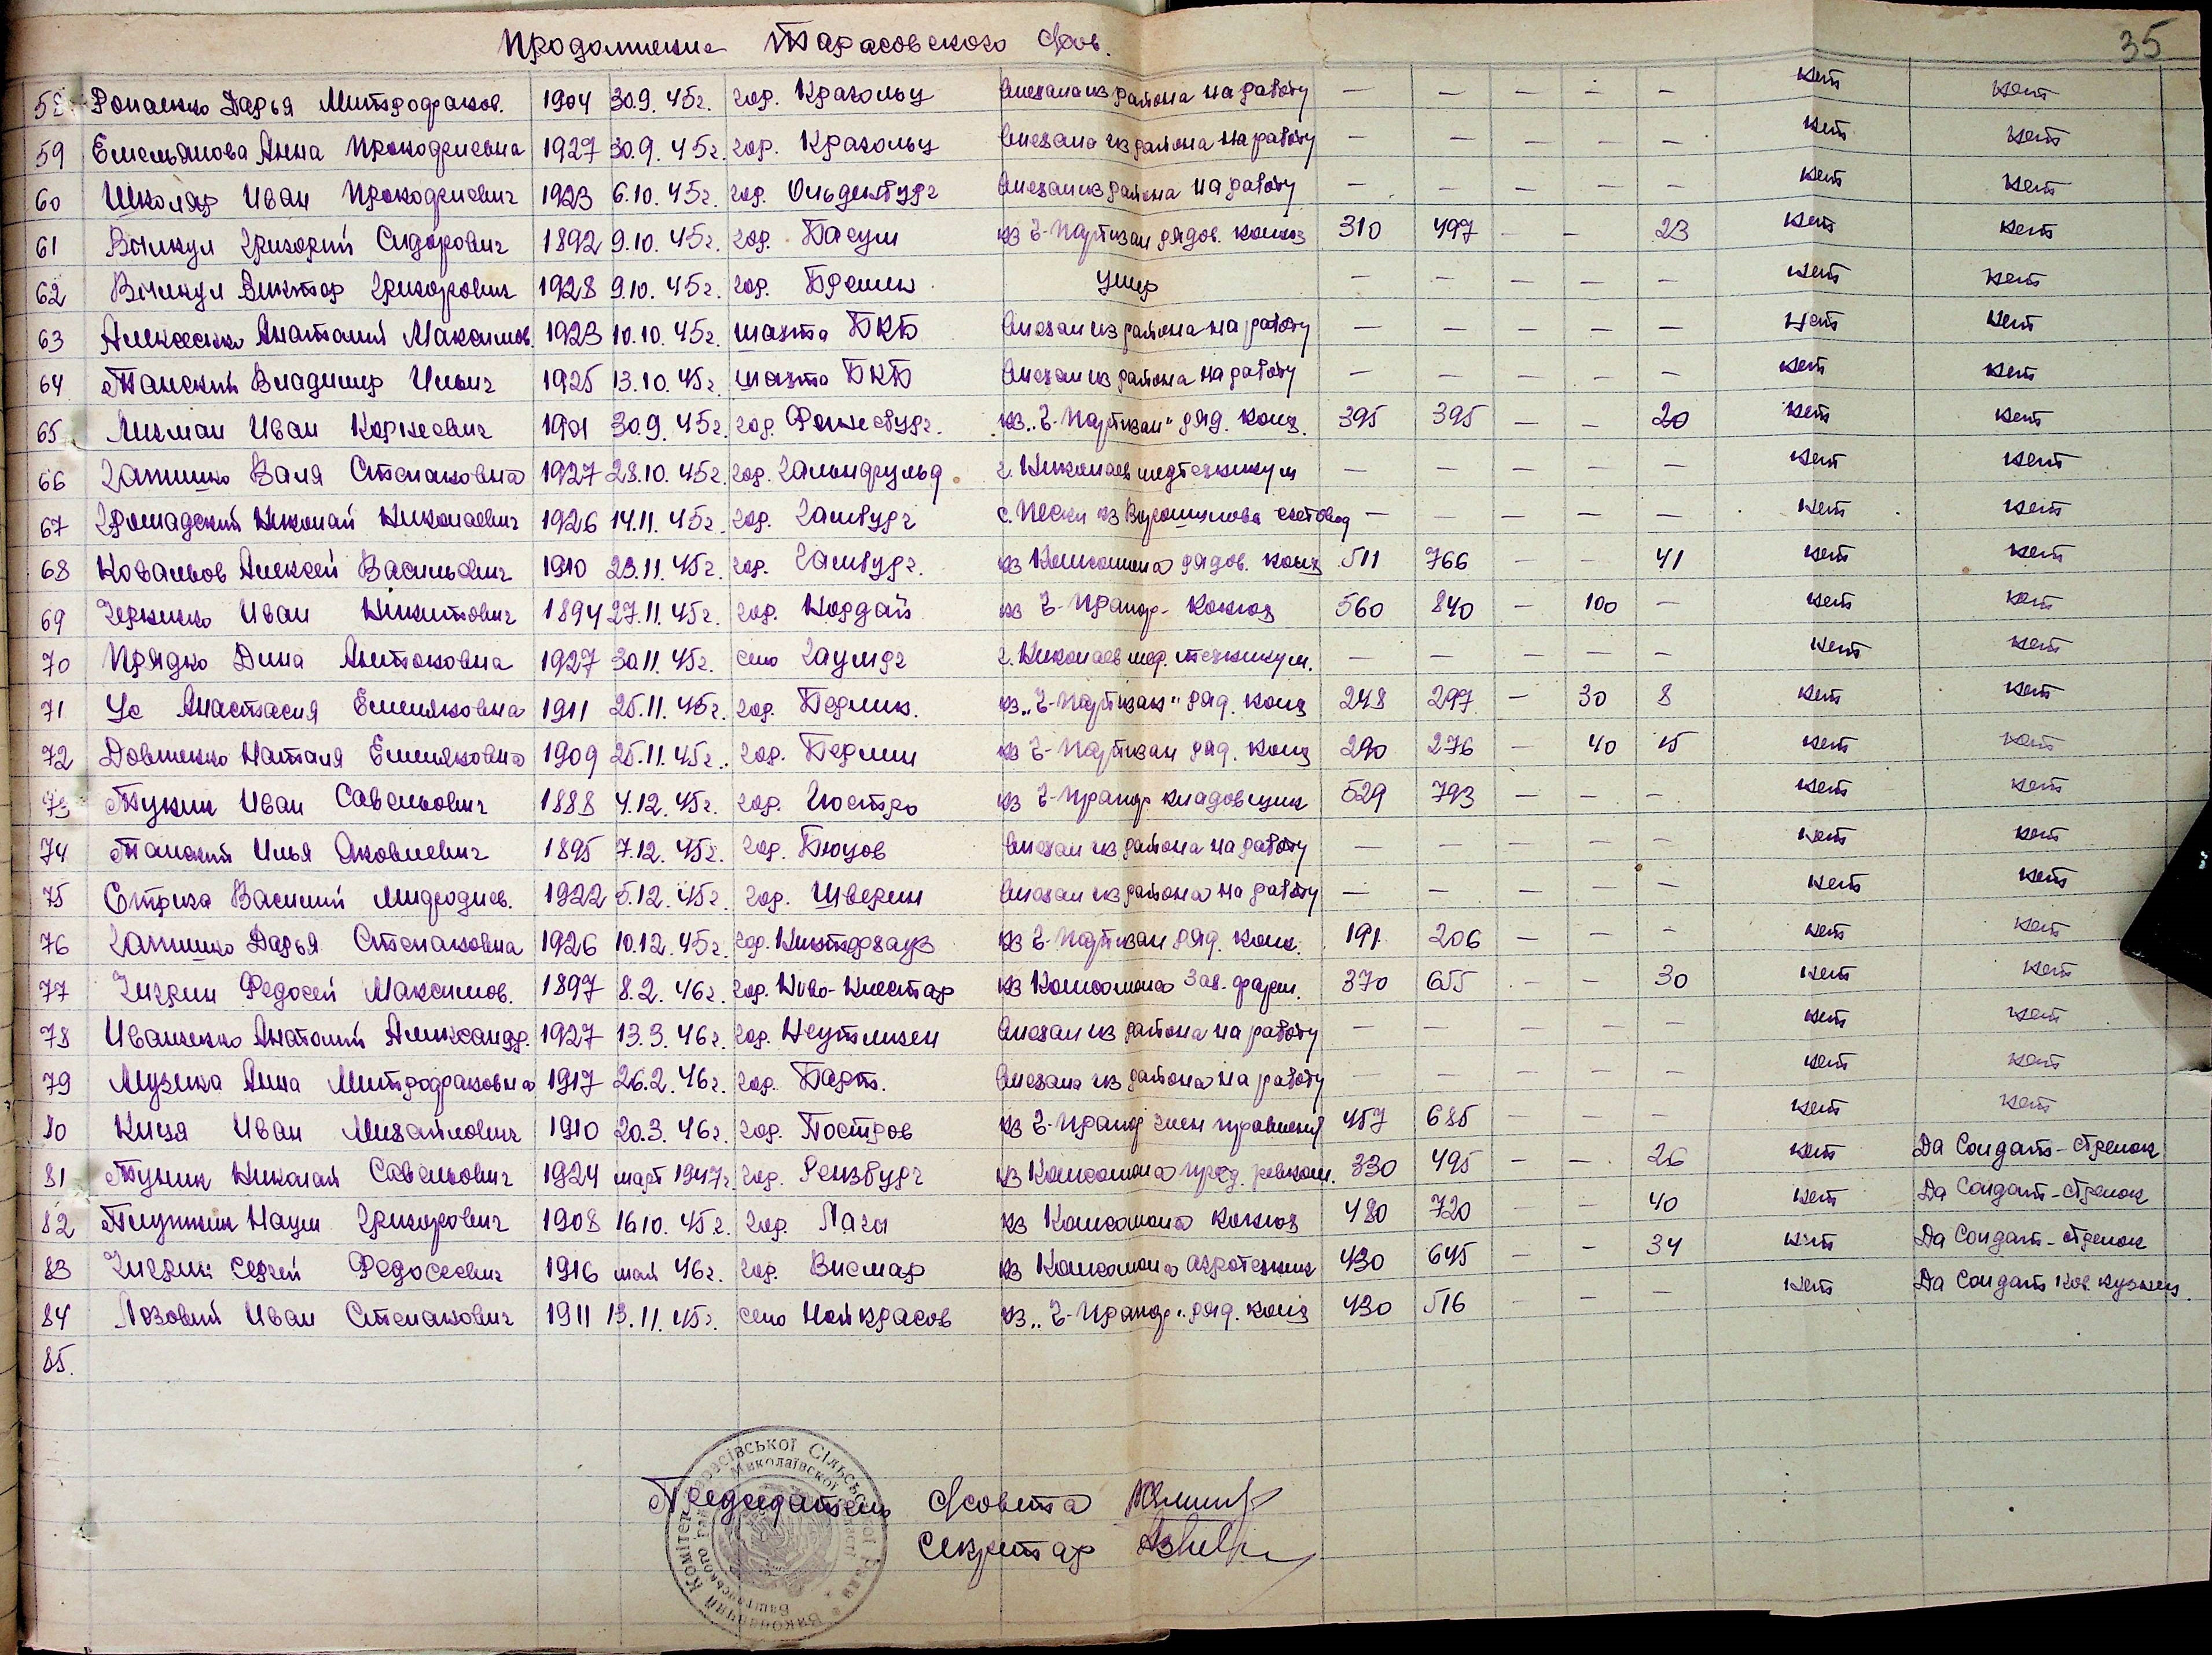 Продолжение Тарасовского с/сов.
35
58 Романенко Дарья Митрофанов. 1904 30.9.45г. гор. Крагольц Выехала из района на работу — — — — — нет нет
59 Емельянова Анна Прокофиевна 1927 30.9.45г. гор. Крагольц Выехала из района на работу — — — — — нет нет
60 Школяр Иван Прокофиевич 1923 6.10.45г. гор. Ольденбург Выехал из района на работу — — — — — нет нет
61 Григорий Сидорович 1892 9.10.45г. гор. Басум кз Ч-Партизан рядов. колхоз 310 497 — — 23 нет нет
62 Виктор Григорович 1928 9.10.45г. гор. Бремен умер — — — — — нет нет
63 Алексеенко Анатолий Максимов. 1923 10.10.45г. шахта БКБ Выехал из района на работу — — — — — нет нет
64 Танский Владимир Ильич 1925 13.10.45г. шахта БКБ Выехал из района на работу — — — — — нет нет
65 Лиман Иван Корнеевич 1901 30.9.45г. гор. кз „Ч-Партизан" ряд. колх. 395 395 — — 20 нет нет
66 Гапишко Валя Степановна 1927 28.10.45г. гор. г. Николаев медтехникум — — — — — нет нет
67 Громадский Николай Николаевич 1926 14.11.45г. гор. Гамбург с. Пески кз Ворошилова счетовод — — — — — нет нет
68 Ковальов Алексей Васильевич 1910 23.11.45г. гор. Гамбург. кз Комсомола рядов. колх 511 766 — — 41 нет нет
69 Черненко Иван Никитович 1894 27.11.45г. гор. Нордай кз Ч-Прапор - колхоз 560 840 — 100 — нет нет
70 Прядко Дина Антоновна 1927 30.11.45г. село Гаумдг г. Николаев мед. техникум. — — — — — нет нет
71 Ус Анастасия Емельяновна 1911 25.11.45г. гор. Берлин. кз „Ч-Партизан" ряд. колх 248 297 — 30 8 нет нет
72 Довженко Наталя Емельяновна 1909 25.11.45г. гор. Берлин кз Ч-Партизан ряд. колх 290 276 — 40 15 нет нет
73 Туник Иван Савельович 1888 4.12.45г. гор. Гюстро кз Ч-Прапор кладовщик 529 793 — — — нет нет
74 Танский Илья Яковлевич 1895 7.12.45г. гор. Бюцов Выехал из района на работу — — — — — нет нет
75 Стриха Василий Мифодиев. 1922 5.12.45г. гор. Шверин Выехал из района на работу — — — — — нет нет
76 Гапишко Дарья Степановна 1926 10.12.45г. гор. кз Ч-Партизан ряд. колх. 191 206 — — — нет нет
77 Чигрин Федосей Максимов. 1897 8.2.46г. гор. кз Комсомола зав. ферм. 370 655 — — 30 нет нет
78 Иваненко Анатолий Александр. 1927 13.3.46г. гор. Неутлизен Выехал из района на работу — — — — — нет нет
79 Музыка Анна Митрофановна 1917 26.2.46г. гор. Барт. Выехала из района на работу — — — — — нет нет
80 Киця Иван Михайлович 1910 20.3.46г. гор. Постров кз Ч-Прапор член правления 457 685 — — — нет нет
81 Туник Николай Савельович 1924 март 1947г. гор. Рензбург кз Комсомола пред. ревком. 330 495 — — 26 нет Да Солдат-стрелок
82 Плужник Наум Григорович 1908 16.10.45г. гор. Лаги кз Комсомола колхоз 480 720 — — 40 нет Да Солдат-стрелок
83 Чигрин Сергей Федосеевич 1916 май 46г. гор. Висмар кз Комсомола агротехник 430 645 — — 34 нет Да Солдат-стрелок
84 Лозовий Иван Степанович 1911 13.11.45г. село Нойкрасов кз „Ч-Прапор" ряд. колх 430 516 — — — нет Да Солдат ков. кузнец.
85.
Председатель с/совета
Секретар